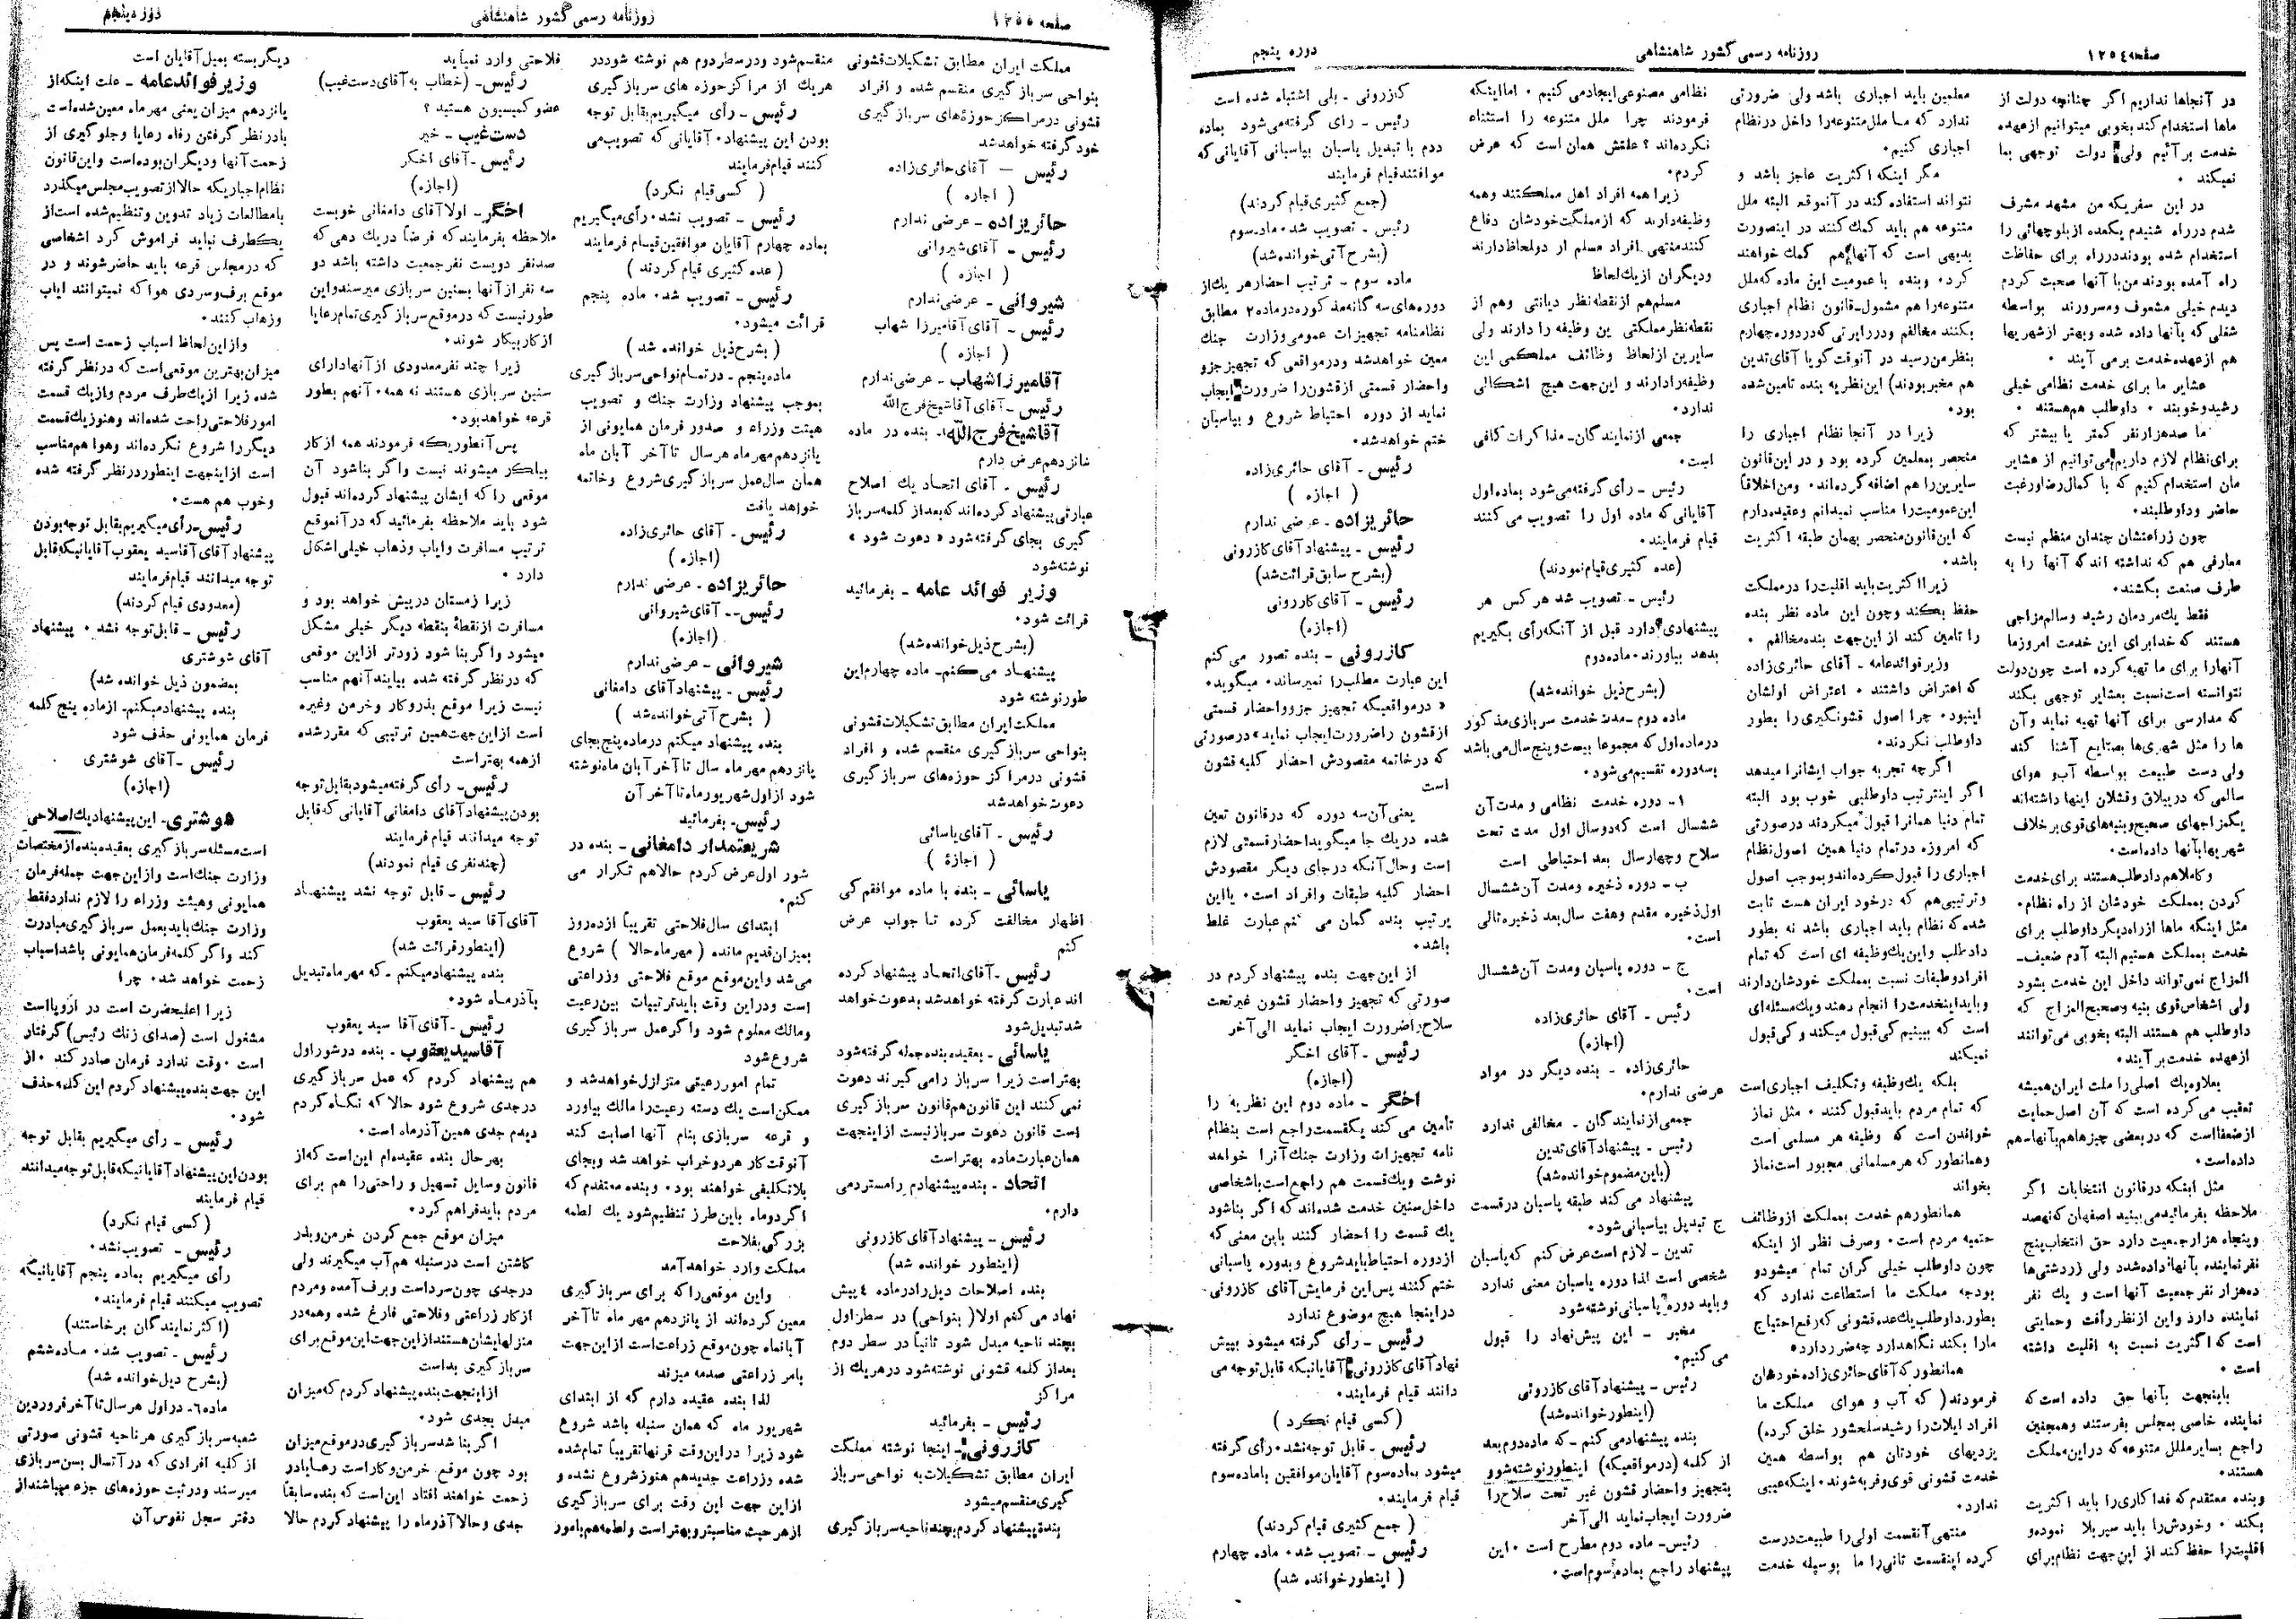 صفحه ۱۲۵٤
روزنامه رسمی کشور شاهنشاهی
دوره پنجم
در آنجاها نداریم اگر چنانچه دولت از
ماها استخدام کند بخوبی میتوانیم از عهده
خدمت بر آئیم ولی دولت توجهی بما
نمیکند ۰
در این سفریکه من مشهد مشرف
شدم در راه شنیدم یکعده از بلوچهائی را
استخدام شده بودند در راه برای حفاظت
راه آمده بودند من با آنها صحبت کردم
دیدم خیلی مشعوف و مسرورند بواسطه
شغلی که بآنها داده شده و بهتر از شهریها
هم از عهده خدمت بر می آیند ۰
عشایر ما برای خدمت نظامی خیلی
رشید و خوبند ۰ داوطلب هم هستند ۰
ما صد هزار نفر کمتر یا بیشتر که
برای نظام لازم داریم می‌توانیم از عشایر
مان استخدام کنیم که با کمال رضا و رغبت
حاضر و داوطلبند۰
چون زراعتشان چندان منظم نیست
معارفی هم که نداشته اند که آنها را به
طرف صنعت بکشند۰
فقط یك مردمان رشید و سالم مزاجی
هستند که خدا برای این خدمت امروز ما
آنهارا برای ما تهیه کرده است چون دولت
نتوانسته است نسبت بعشایر توجهی بکند
که مدارسی برای آنها تهیه نماید و آن
ها را مثل شهری‌ها بصنایع آشنا کند
ولی دست طبیعت بواسطه آب و هوای
سالمی که در ییلاق و قشلان اینها داشته‌اند
یکمزاجهای صحیح و بنیه‌های قوی بر خلاف
شهریها بآنها داده است۰
و کاملاهم داوطلب هستند برای خدمت
کردن بمملکت خودشان از راه نظام۰
مثل اینکه ماها از راه دیگر داوطلب برای
خدمت بمملکت هستیم البته آدم ضعیف‌ـ
المزاج نمی‌تواند داخل این خدمت بشود
ولی اشخاص قوی بنیه و صحیح المزاج که
داوطلب هم هستند البته بخوبی می‌توانند
از عهده خدمت بر آیند۰
بعلاوه یك اصلی را ملت ایران همیشه
تعقیب می‌کرده است که آن اصل حمایت
از ضعفا است که در بعضی چیزها هم بآنها سهم
داده است۰
مثل اینکه در قانون انتخابات اگر
ملاحظه بفرمائید می‌بینید اصفهان که نهصد
و پنجاه هزار جمعیت دارد حق انتخاب پنج
نفر نماینده بآنها داده شده ولی زردشتی‌ها
ده هزار نفر جمعیت آنها است و یك نفر
نماینده دارد و این از نظر رأفت و حمایتی
است که اکثریت نسبت به اقلیت داشته
است ۰
باینجهت بآنها حق داده است که
نماینده خاصی بمجلس بفرستند و همچنین
راجع بسایر ملل متنوعه که در این مملکت
هستند۰
و بنده معتقدم که فدا کاری را باید اکثریت
بکند ۰ و خودش را باید سپر بلا نموده و
اقلیت را حفظ کند از این جهت نظام برای
معلمین باید اجباری باشد ولی ضرورتی
ندارد که ما ملل متنوعه را داخل در نظام
اجباری کنیم۰
مگر اینکه اکثریت عاجز باشد و
نتواند استفاده کند در آنموقع البته ملل
متنوعه هم باید کمك کنند در اینصورت
بدیهی است که آنها هم کمك خواهند
کرد۰ و بنده با عمومیت این ماده که ملل
متنوعه را هم مشمول‌ـ قانون نظام اجباری
بکنند مخالفم و در راپرتی که در دوره چهارم
بنظر من رسید در آنوقت گویا آقای تدین
هم مخبر بودند) این نظریه بنده تامین شده
بود۰
زیرا در آنجا نظام اجباری را
منحصر بمعلمین کرده بود و در این قانون
سایرین را هم اضافه کرده‌اند۰ و من اخلاقاً
این عمومیت را مناسب نمیدانم و عقیده دارم
که این قانون منحصر بهمان طبقه اکثریت
باشد۰
زیرا اکثریت باید اقلیت را در مملکت
حفظ بکند و چون این ماده نظر بنده
را تامین کند از این جهت بنده مخالفم ۰
وزیر فوائد عامه ـ آقای حائری زاده
که اعتراض داشتند ۰ اعتراض اولشان
اینبود۰ چرا اصول قشونگیری را بطور
داوطلب نکردند۰
اگر چه تجربه جواب ایشانرا میدهد
اگر اینترتیب داوطلبی خوب بود البته
تمام دنیا همانرا قبول میکردند در صورتی
که امروزه در تمام دنیا همین اصول نظام
اجباری را قبول کرده‌اند و بموجب اصول
و ترتیبی هم که در خود ایران هست ثابت
شده که نظام باید اجباری باشد نه بطور
داد طلب و این یك وظیفه ای است که تمام
افراد وطبقات نسبت بمملکت خودشان دارند
و باید اینخدمت را انجام دهند و یك مسئله‌ای
است که ببینیم کی قبول میکند و کی قبول
نمیکند
بلکه یك وظیفه و تکلیف اجباری است
که تمام مردم باید قبول کنند ۰ مثل نماز
خواندن است که وظیفه هر مسلمی است
و همانطور که هر مسلمانی مجبور است نماز
بخواند
همانطور هم خدمت بمملکت از وظائف
حتمیه مردم است۰ و صرف نظر از اینکه
چون داوطلب خیلی گران تمام میشود و
بودجه مملکت ما استطاعت ندارد که
بطور داوطلب یك عده قشونی که رفع احتیاج
مارا بکند نگاهدارد چه ضرر دارد۰
همانطور که آقای حائری زاده خودشان
فرمودند( که آب و هوای مملکت ما
افراد ایلات را رشید سلحشور خلق کرده)
یزدیهای خودتان هم بواسطه همین
خدمت قشونی قوی و فربه شوند۰ اینکه عیبی
ندارد۰
منتهی آنقسمت اولی را طبیعت درست
کرده اینقسمت ثانی را ما بوسیله خدمت
نظامی مصنوعی ایجاد می کنیم ۰ اما اینکه
فرمودند چرا ملل متنوعه را استثناء
نکرده‌اند ؟ علتش همان است که عرض
کردم۰
زیرا همه افراد اهل مملکتند و همه
وظیفه دارند که از مملکت خودشان دفاع
کنند منتهی افراد مسلم از دو لحاظ دارند
و دیگران از یك لحاظ
مسلم هم از نقطه نظر دیانتی و هم از
نقطه نظر مملکتی این وظیفه را دارند ولی
سایرین از لحاظ وظائف مملکتی این
وظیفه را دارند و این جهت هیچ اشکالی
ندارد۰
جمعی از نمایندگان‌ـ مذاکرات کافی
است۰
رئیس ـ رأی گرفته می‌شود بماده اول
آقایانی که ماده اول را تصویب می کنند
قیام فرمایند۰
(عده کثیری قیام نمودند)
رئیس ـ تصویب شد هر کس هر
پیشنهادی دارد قبل از آنکه رأی بگیریم
بدهد بیاورند۰ ماده دوم
(بشرح ذیل خوانده شد)
ماده دوم ـ مدت خدمت سربازی مذکور
در ماده اول که مجموعا بیست و پنج سال می‌باشد
بسه دوره تقسیم می‌شود۰
۱ـ دوره خدمت نظامی و مدت آن
ششسال است که دو سال اول مدت تحت
سلاح و چهار سال بعد احتیاطی است
ب ـ دوره ذخیره و مدت آن ششسال
اول ذخیره مقدم و هفت سال بعد ذخیره تالی
است۰
ج ـ دوره پاسبان و مدت آن ششسال
است۰
رئیس ـ آقای حائری زاده
(اجازه)
حائری زاده ـ بنده دیگر در مواد
عرضی ندارم۰
جمعی از نمایندگان ـ مخالفی ندارد
رئیس ـ پیشنهاد آقای تدین
(باین مضموم خوانده شد)
پیشنهاد می کند طبقه پاسبان در قسمت
ج تبدیل بپاسبانی شود۰
تدین ـ لازم است عرض کنم که پاسبان
شخصی است لذا دوره پاسبان معنی ندارد
و باید دوره پاسبانی نوشته شود
مخبر ـ این پیش نهاد را قبول
می کنیم۰
رئیس ـ پیشنهاد آقای کازرونی
(اینطور خوانده شد)
بنده پیشنهاد می کنم ـ که ماده دوم بعد
از کلمه (در مواقعیکه) اینطور نوشته شوو
بتجهیز و احضار قشون غیر تحت سلاح را
ضرورت ایجاب نماید الی آخر
رئیس‌ـ ماده دوم مطرح است ۰ این
پیشنهاد راجع بماده سوم است۰
کازرونی ـ بلی اشتباه شده است
رئیس ـ رای گرفته می‌شود بماده
ددم با تبدیل پاسبان بپاسبانی آقایانی که
موافقتند قیام فرمایند
(جمع کثیری قیام کردند)
رئیس ـ تصویب شد۰ ماده سوم
(بشرح آتی خوانده شد)
ماده سوم ـ ترتیب احضار هر یك از
دوره‌های سه گانه مذکوره در ماده ۲ مطابق
نظامنامه تجهیزات عمومی وزارت جنك
معین خواهد شد و در مواقعی که تجهیز جزو
و احضار قسمتی از قشون را ضرورت ایجاب
نماید از دوره احتیاط شروع و بپاسبان
ختم خواهد شد۰
رئیس ـ آقای حائری زاده
( اجازه )
حائریزاده ـ عرضی ندارم
رئیس ـ پیشنهاد آقای کازرونی
(بشرح سابق قرائت شد)
رئیس ـ آقای کازرونی
(اجازه)
کازرونی ـ بنده تصور می کنم
این عبارت مطلب را نمیرساند۰ میگوید۰
« در مواقعیکه تجهیز جزو و احضار قسمتی
از قشون را ضرورت ایجاب نماید» در صورتی
که در خاتمه مقصودش احضار کلیه قشون
است
یعنی آن سه دوره که در قانون تعین
شده در یك جا میگوید احضار قسمتی لازم
است و حال آنکه در جای دیگر مقصودش
احضار کلیه طبقات و افراد است۰ با این
ترتیب بنده گمان می کنم عبارت غلط
باشد۰
از این جهت بنده پیشنهاد کردم در
صورتی که تجهیز و احضار قشون غیر تحت
سلاح را ضرورت ایجاب نماید الی آخر
رئیس ـ آقای اخگر
(اجازه)
اخگر ـ ماده دوم این نظریه را
تأمین می کند یکقسمت راجع است بنظام
نامه تجهیزات وزارت جنك آنرا خواهد
نوشت و یك قسمت هم راجع است باشخاصی
داخل سنین خدمت شده‌اند که اگر بنا شود
یك قسمت را احضار کنند باین معنی که
از دوره احتیاط باید شروع و بدوره پاسبانی
ختم کنند پس این فرمایش آقای کازرونی
در اینجا هیچ موضوع ندارد
رئیس ـ رأی گرفته میشود بپیش
نهاد آقای کازرونی آقایانیکه قابل توجه می
دانند قیام فرمایند۰
(کسی قیام نکرد )
رئیس ـ قابل توجه نشد۰ رأی گرفته
میشود بماده سوم آقایان موافقین با ماده سوم
قیام فرمایند۰
( جمع کثیری قیام کردند)
رئیس ـ تصویب شد۰ ماده چهارم
( اینطور خوانده شد)
صفحه ۱۲۵۵
روزنامه رسمی کشور شاهنشاهی
دوره پنجم
مملکت ایران مطابق تشکیلات قشونی
بنواحی سرباز گیری منقسم شده و افراد
قشونی در مراکز حوزه‌های سرباز گیری
خود گرفته خواهد شد
رئیس ـ آقای حائری زاده
( اجازه )
حائریزاده ـ عرضی ندارم
رئیس ـ آقای شیروانی
( اجازه )
شیروانی ـ عرضی ندارم
رئیس ـ آقای آقا میرزا شهاب
( اجازه )
آقا میرزا شهاب ـ عرضی ندارم
رئیس ـ آقای آقا شیخ فرج الله
آقا شیخ فرج الله ـ بنده در ماده
شانزدهم عرض دارم
رئیس ـ آقای اتحاد یك اصلاح
عبارتی پیشنهاد کرده‌اند که بعد از کلمه سرباز
گیری بجای گرفته شود « دعوت شود »
نوشته شود
وزیر فوائد عامه ـ بفرمائید
قرائت شود۰
(بشرح ذیل خوانده شد)
پیشنهاد می‌کنم‌ـ ماده چهارم این
طور نوشته شود
مملکت ایران مطابق تشکیلات قشونی
بنواحی سرباز گیری منقسم شده و افراد
قشونی در مراکز حوزه‌های سرباز گیری
دعوت خواهد شد
رئیس ـ آقای یاسائی
( اجازة )
یاسائی ـ بنده با ماده موافقم کی
اظهار مخالفت کرده تا جواب عرض
کنم
رئیس ـ آقای اتحاد پیشنهاد کرده
اند عبارت گرفته خواهد شد بدعوت خواهد
شد تبدیل شود
یاسائی ـ بعقیده بنده جمله گرفته شود
بهتر است زیرا سرباز را می گیرند دعوت
نمی کنند این قانون هم قانون سرباز گیری
است قانون دعوت سرباز نیست از اینجهت
همان عبارت ماده بهتر است
اتحاد ـ بنده پیشنهادم را مسترد می
دارم۰
رئیس ـ پیشنهاد آقای کازرونی
(اینطور خوانده شد)
بنده اصلاحات ذیل را در ماده ٤ پیش
نهاد می کنم اولا( بنواحی) در سطر اول
بچند ناحیه مبدل شود ثانیاً در سطر دوم
بعد از کلمه قشونی نوشته شود در هر یك از
مراکز
رئیس ـ بفرمائید
کازرونی ـ اینجا نوشته مملکت
ایران مطابق تشکیلات به نواحی سرباز
گیری منقسم میشود
بنده پیشنهاد کردم بچند ناحیه سرباز گیری
منقسم شود و در سطر دوم هم نوشته شود در
هر یك از مراکز حوزه های سرباز گیری
رئیس ـ رأی میگیریم بقابل توجه
بودن این پیشنهاد۰ آقایانی که تصویب می
کنند قیام فرمایند
( کسی قیام نکرد)
رئیس ـ تصویب نشد۰ رأی میگیریم
بماده چهارم آقایان موافقین قیام فرمایند
( عده کثیری قیام کردند )
رئیس ـ تصویب شد۰ ماده پنجم
قرائت میشود۰
( بشرح ذیل خوانده شد )
ماده پنجم ـ در تمام نواحی سرباز گیری
بموجب پیشنهاد وزارت جنك و تصویب
هیئت وزراء و صدور فرمان همایونی از
پانزدهم مهر ماه هر سال تا آخر آبان ماه
همان سال عمل سرباز گیری شروع و خاتمه
خواهد یافت
رئیس ـ آقای حائری زاده
(اجازه)
حائریزاده ـ عرضی ندارم
رئیس ـ آقای شیروانی
(اجازه)
شیروانی ـ عرضی ندارم
رئیس ـ پیشنهاد آقای دامغانی
( بشرح آتی خوانده شد )
بنده پیشنهاد میکنم در ماده پنج بجای
پانزدهم مهر ماه سال تا آخر آبان ماه نوشته
شود از اول شهریور ماه تا آخر آن
رئیس‌ـ بفرمائید
شریعتمدار دامغانی ـ بنده در
شور اول عرض کردم حالا هم تکرار می
کنم۰
ابتدای سال فلاحتی تقریباً ازده روز
بمیزان قدیم مانده ( مهر ماه حالا ) شروع
می‌شد و این موقع موقع فلاحتی و زراعتی
است و در این وقت باید ترتیبات بین رعیت
و مالك معلوم شود و اگر عمل سرباز گیری
شروع شود
تمام امور رعیتی متزلزل خواهد شد و
ممکن است یك دسته رعیت را مالك بیاورد
و قرعه سربازی بنام آنها اصابت کند
آنوقت کار هر دو خراب خواهد شد و بجای
بلا تکلیفی خواهند بود۰ و بنده معتقدم که
اگر دو ماه باین طرز تنظیم شود یك لطمه
بزرگی بفلاحت
مملکت وارد خواهد آمد
و این موقعی را که برای سرباز گیری
معین کرده‌اند از پانزدهم مهر ماه تا آخر
آبانماه چون موقع زراعت است از این جهت
بامر زراعتی صدمه میزند
لذا بنده عقیده دارم که از ابتدای
شهریور ماه که همان سنبله باشد شروع
شود زیرا در این وقت خرمنها تقریباً تمام شده
شده و زراعت جدید هم هنوز شروع نشده و
از این جهت این وقت برای سرباز گیری
از هر حیث مناسبتر و بهتر است و لطمه هم بامور
فلاحتی وارد نمیاید
رئیس‌ـ (خطاب به آقای دست غیب)
عضو کمیسیون هستید ؟
دست غیب ـ خیر
رئیس ـ آقای اخگر
(اجازه)
اخگر ـ اولا آقای دامغانی خوبست
ملاحظه بفرمایند که فرضاً در یك دهی که
صد نفر دویست نفر جمعیت داشته باشد دو
سه نفر از آنها بسنین سربازی میرسند و این
طور نیست که در موقع سرباز گیری تمام رعایا
از کار بیکار شوند۰
زیرا چند نفر معدودی از آنها دارای
سنین سربازی هستند نه همه۰ آنهم بطور
قرعه خواهد بود۰
پس آنطوریکه فرمودند همه از کار
بیکار میشوند نیست و اگر بنا شود آن
موقعی را که ایشان پیشنهاد کرده‌اند قبول
شود باید ملاحظه بفرمائید که در آنموقع
ترتیب مسافرت و ایاب و ذهاب خیلی اشکال
دارد ۰
زیرا زمستان در پیش خواهد بود و
مسافرت از نقطهٔ بنقطه دیگر خیلی مشکل
میشود و اگر بنا شود زودتر از این موقعی
که در نظر گرفته شده بیایند آنهم مناسب
نیست زیرا موقع بذر و کار و خرمن و غیره
است از این جهت همین ترتیبی که مقرر شده
از همه بهتر است
رئیس‌ـ رأی گرفته میشود بقابل توجه
بودن پیشنهاد آقای دامغانی آقایانی که قابل
توجه میدانند قیام فرمایند
(چند نفری قیام نمودند)
رئیس ـ قابل توجه نشد پیشنهاد
آقای آقا سید یعقوب
(اینطور قرائت شد)
بنده پیشنهاد میکنم ـ که مهر ماه تبدیل
بآذر ماه شود۰
رئیس ـ آقای آقا سید یعقوب
آقا سید یعقوب ـ بنده در شور اول
هم پیشنهاد کردم که عمل سرباز گیری
در جدی شروع شود حالا که نگاه کردم
دیدم جدی همین آذر ماه است۰
بهر حال بنده عقیده‌ام این است که از
قانون وسایل تسهیل و راحتی را هم برای
مردم باید فراهم کرد۰
میزان موقع جمع کردن خرمن و بذر
کاشتن است در سنبله هم آب میگیرند ولی
در جدی چون سرد است و برف آمده و مردم
از کار زراعتی و فلاحتی فارغ شده و همه در
منزلهایشان هستند از این جهت این موقع برای
سرباز گیری بد است
از اینجهت بنده پیشنهاد کردم که میزان
مبدل بجدی شود۰
اگر بنا شد سرباز گیری در موقع میزان
بود چون موقع خرمن و کار است رعایا در
زحمت خواهند افتاد این است که بنده سابقا
جدی و حالا آذر ماه را پیشنهاد کردم حالا
دیگر بسته بمیل آقایان است
وزیر فوائد عامه ـ علت اینکه از
پانزدهم میزان یعنی مهر ماه معین شده است
با در نظر گرفتن رفاه رعایا و جلو گیری از
زحمت آنها و دیگران بوده است و این قانون
نظام اجباریکه حالا از تصویب مجلس میگذرد
با مطالعات زیاد تدوین و تنظیم شده است از
یکطرف نباید فراموش کرد اشخاصی
که در مجلس قرعه باید حاضر شوند و در
موقع برف و سردی هوا که نمیتوانند ایاب
و زهاب کنند۰
و از این لحاظ اسباب زحمت است پس
میزان بهترین موقعی است که در نظر گرفته
شده زیرا از یك طرف مردم و از یك قسمت
امور فلاحتی راحت شده‌اند و هنوز یك قسمت
دیگر را شروع نکرده‌اند و هوا هم مناسب
است از اینجهت اینطور در نظر گرفته شده
و خوب هم هست۰
رئیس‌ـ رأی میگیریم بقابل توجه بودن
پیشنهاد آقای آقا سید یعقوب آقایانیکه قابل
توجه میدانند قیام فرمایند
(معدودی قیام کردند)
رئیس ـ قابل توجه نشد ۰ پیشنهاد
آقای شوشتری
بمضمون ذیل خوانده شد)
بنده پیشنهاد میکنم‌ـ از ماده پنج کلمه
فرمان همایونی حذف شود
رئیس ـ آقای شوشتری
(اجازه)
شوشتری‌ـ این پیشنهاد یك اصلاحی
است مسئله سرباز گیری بعقیده بنده از مختصات
وزارت جنك است و از این جهت جمله فرمان
همایونی و هیئت وزراء را لازم ندارد فقط
وزارت جنك باید بعمل سرباز گیری مبادرت
کند و اگر کلمه فرمان همایونی باشد اسباب
زحمت خواهد شد۰ چرا
زیرا اعلیحضرت است در اروپا است
مشغول است (صدای زنك رئیس) گرفتار
است ۰ وقت ندارد فرمان صادر کند ۰ از
این جهت بنده پیشنهاد کردم این کلمه حذف
شود۰
رئیس ـ رأی میگیریم بقابل توجه
بودن این پیشنهاد آقایانیکه قابل توجه میدانند
قیام فرمایند
(کسی قیام نکرد)
رئیس ـ تصویب نشد۰
رأی میگیریم بماده پنجم آقایانیکه
تصویب میکنند قیام فرمایند۰
(اکثر نمایندگان برخاستند)
رئیس ـ تصویب شد۰ ماده ششم
(بشرح ذیل خوانده شد)
ماده ٦ـ در اول هر سال تا آخر فروردین
شعبه سرباز گیری هر ناحیه قشونی صورتی
از کلیه افرادی که در آنسال بسن سربازی
میرسند و در ثبت حوزه‌های جزء میباشند از
دفتر سجل نفوس آن